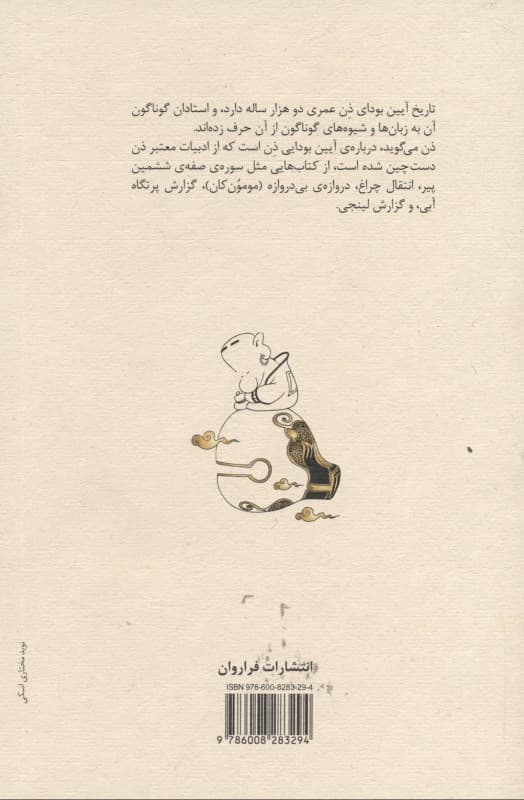 تاریخ آیین بودای ذِن عمری دو هزار ساله دارد، و استادان گوناگون
آن به زبان‌ها و شیوه‌های گوناگون از آن حرف زده‌اند.
ذن می‌گوید، درباره‌ی آیین بودایی ذِن است که از ادبیات معتبر ذن
دست‌چین شده است، از کتاب‌هایی مثل سوره‌ی صفه‌ی ششمین
پیر، انتقال چراغ، دروازه‌ی بی‌دروازه (مومؤن‌کان)، گزارش پرتگاه
آبی، و گزارش لینجی.
انتشارات فراروان
ISBN 978-600-8283-29-4
9 786008 283294
نوید مختاری اسکی